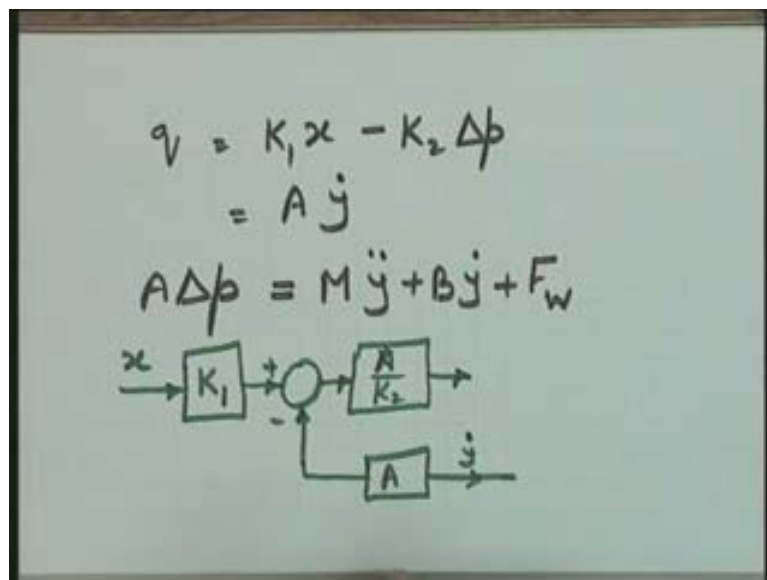 q = K₁x - K₂ Δp
= A ẏ
AΔp = M ÿ + B ẏ + F_W
x K₁ + - A/K₂
A ẏ